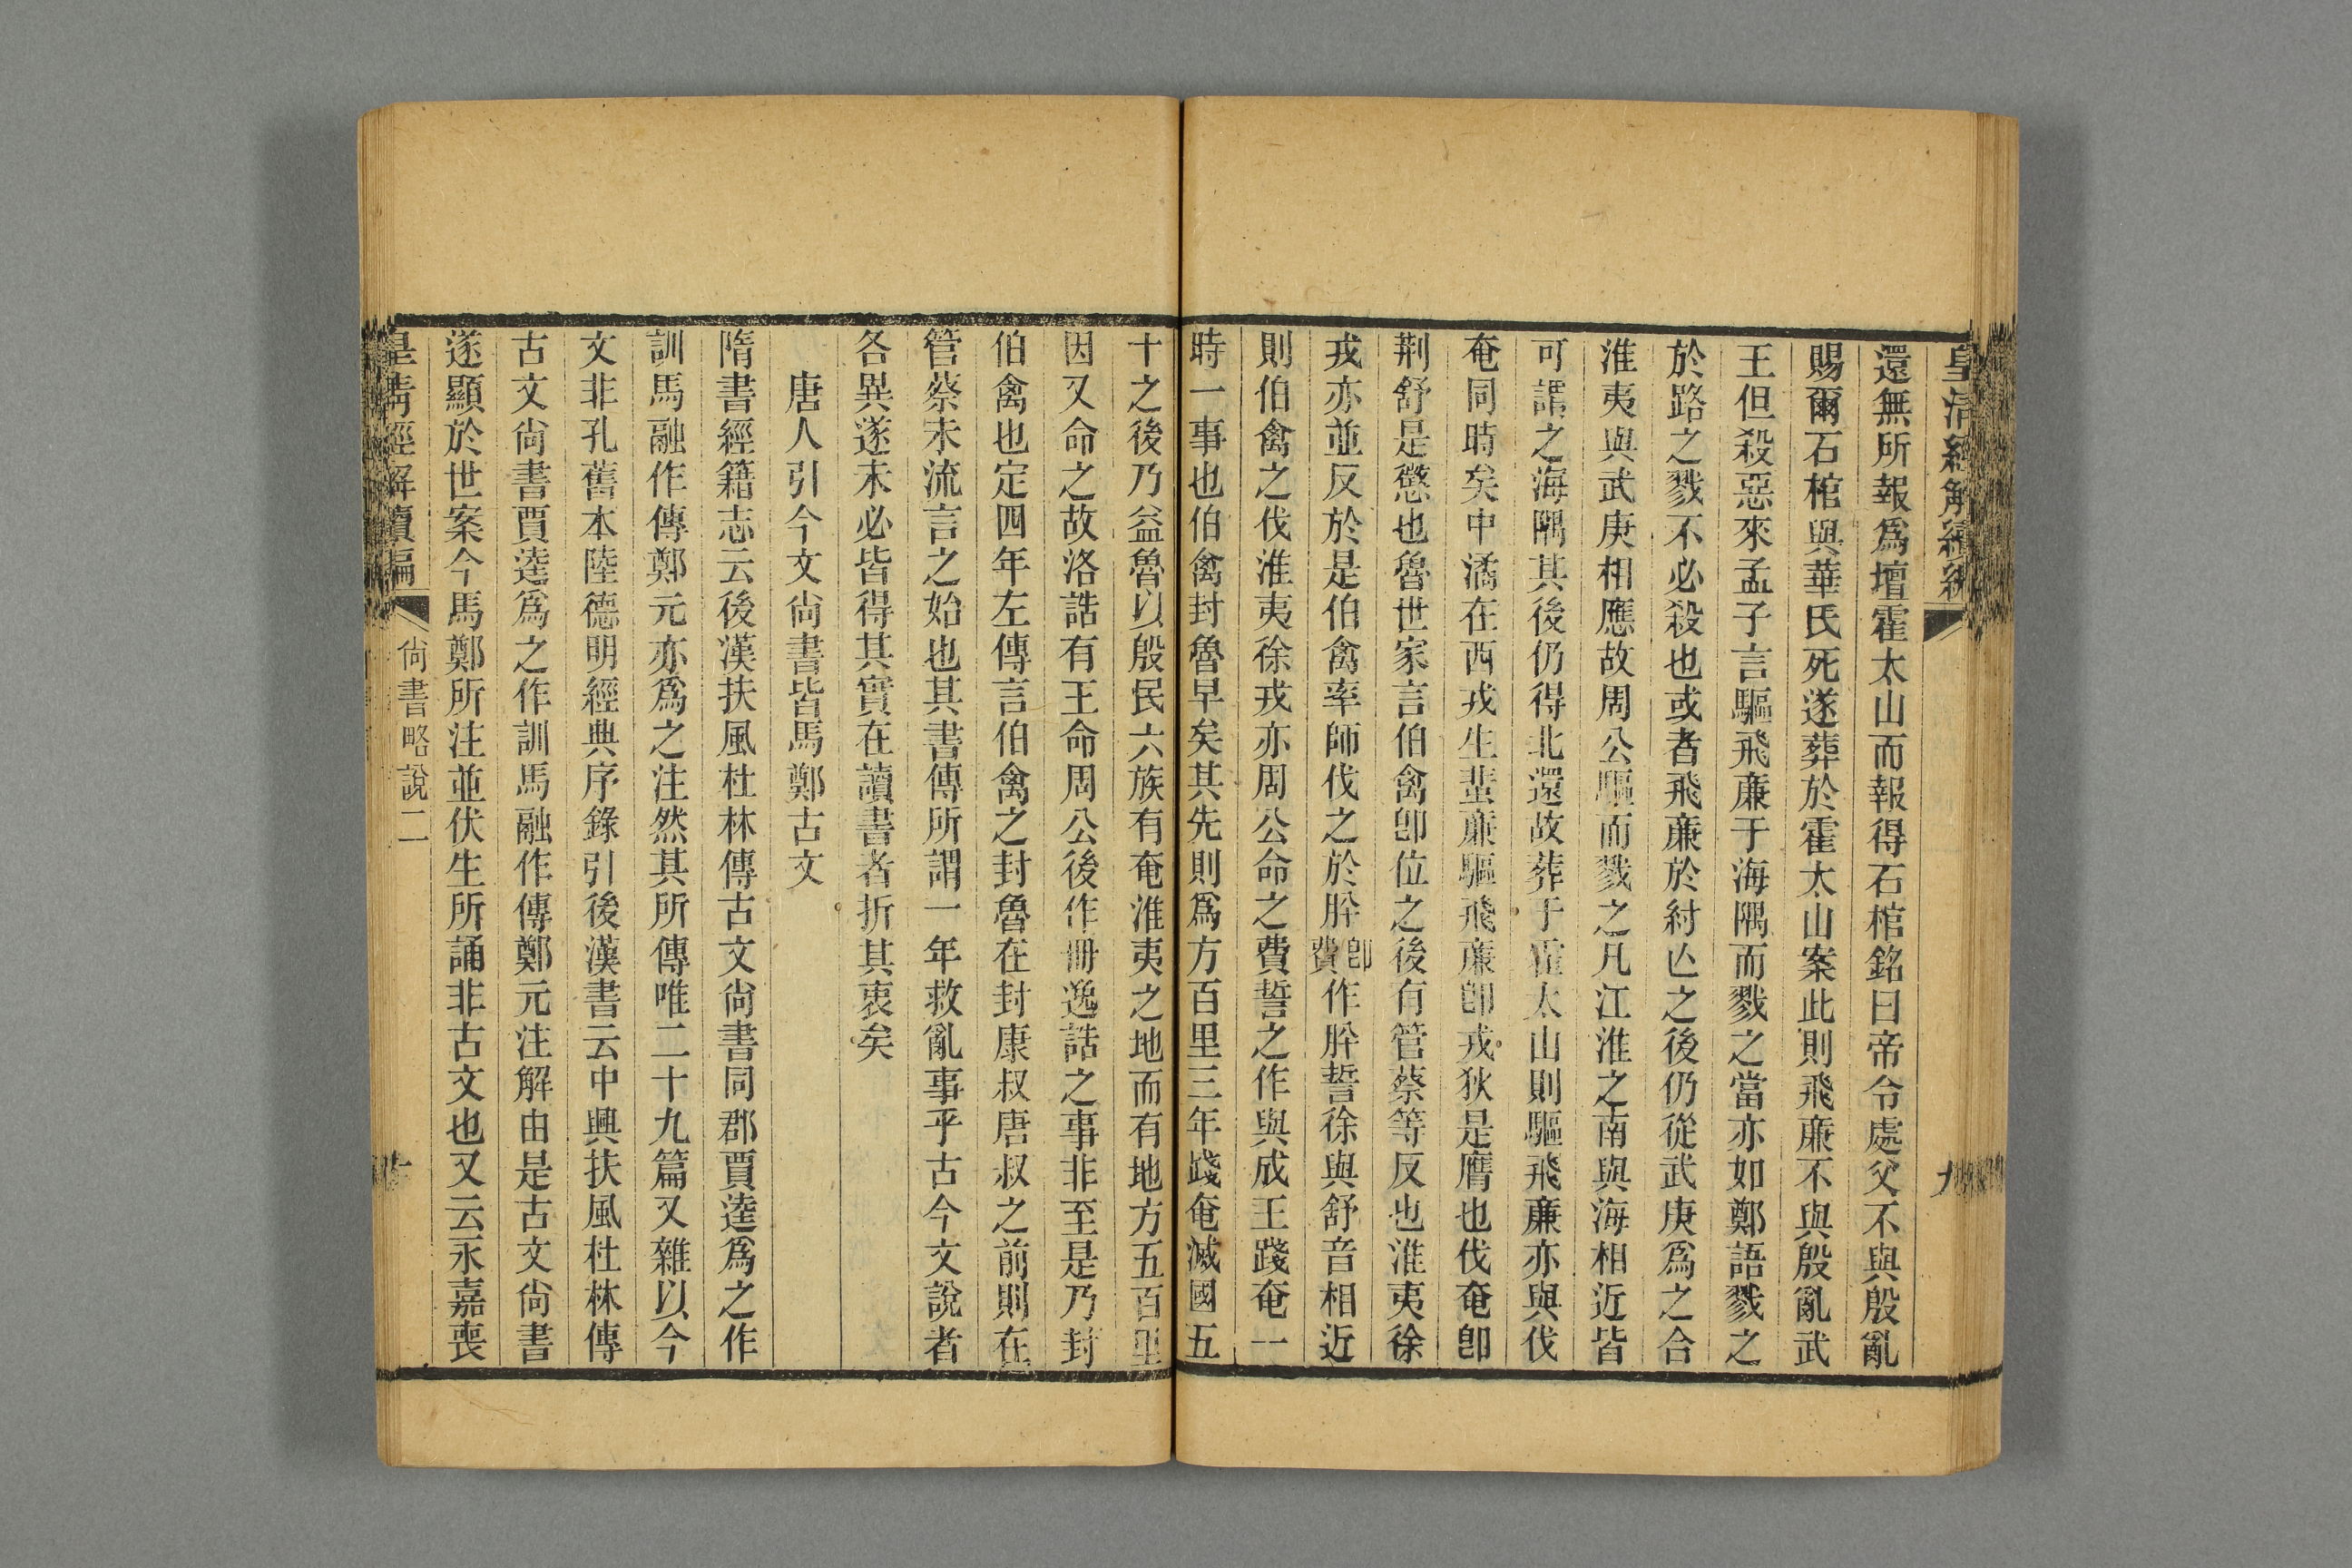 皇清經解續編
九
還無所報爲壇霍太山而報得石棺銘曰帝令處父不與殷亂
賜爾石棺與華氏死遂葬於霍太山案此則飛廉不與殷亂武
王但殺惡來孟子言驅飛廉于海隅而戮之當亦如鄭語戮之
於路之戮不必殺也或者飛廉於紂亾之後仍從武庚爲之合
淮夷與武庚相應故周公驅而戮之凡江淮之南與海相近皆
可謂之海隅其後仍得北還故葬于霍太山則驅飛廉亦與伐
奄同時矣中潏在西戎生蜚廉驅飛廉卽戎狄是膺也伐奄卽
荆舒是懲也魯世家言伯禽卽位之後有管蔡等反也淮夷徐
戎亦並反於是伯禽率師伐之於肸卽費作肸誓徐與舒音相近
則伯禽之伐淮夷徐戎亦周公命之費誓之作與成王踐奄一
時一事也伯禽封魯早矣其先則爲方百里三年踐奄滅國五
十之後乃益魯以殷民六族有奄淮夷之地而有地方五百里
因又命之故洛誥有王命周公後作冊逸誥之事非至是乃封
伯禽也定四年左傳言伯禽之封魯在封康叔唐叔之前則在
管蔡未流言之始也其書傳所謂一年救亂事乎古今文說者
各異遂未必皆得其實在讀書者折其衷矣
唐人引今文尙書皆馬鄭古文
隋書經籍志云後漢扶風杜林傳古文尙書同郡賈逵爲之作
訓馬融作傳鄭元亦爲之注然其所傳唯二十九篇又雜以今
文非孔舊本陸德明經典序錄引後漢書云中興扶風杜林傳
古文尙書賈逵爲之作訓馬融作傳鄭元注解由是古文尙書
遂顯於世案今馬鄭所注並伏生所誦非古文也又云永嘉喪
皇清經解續編
尙書略說二
十